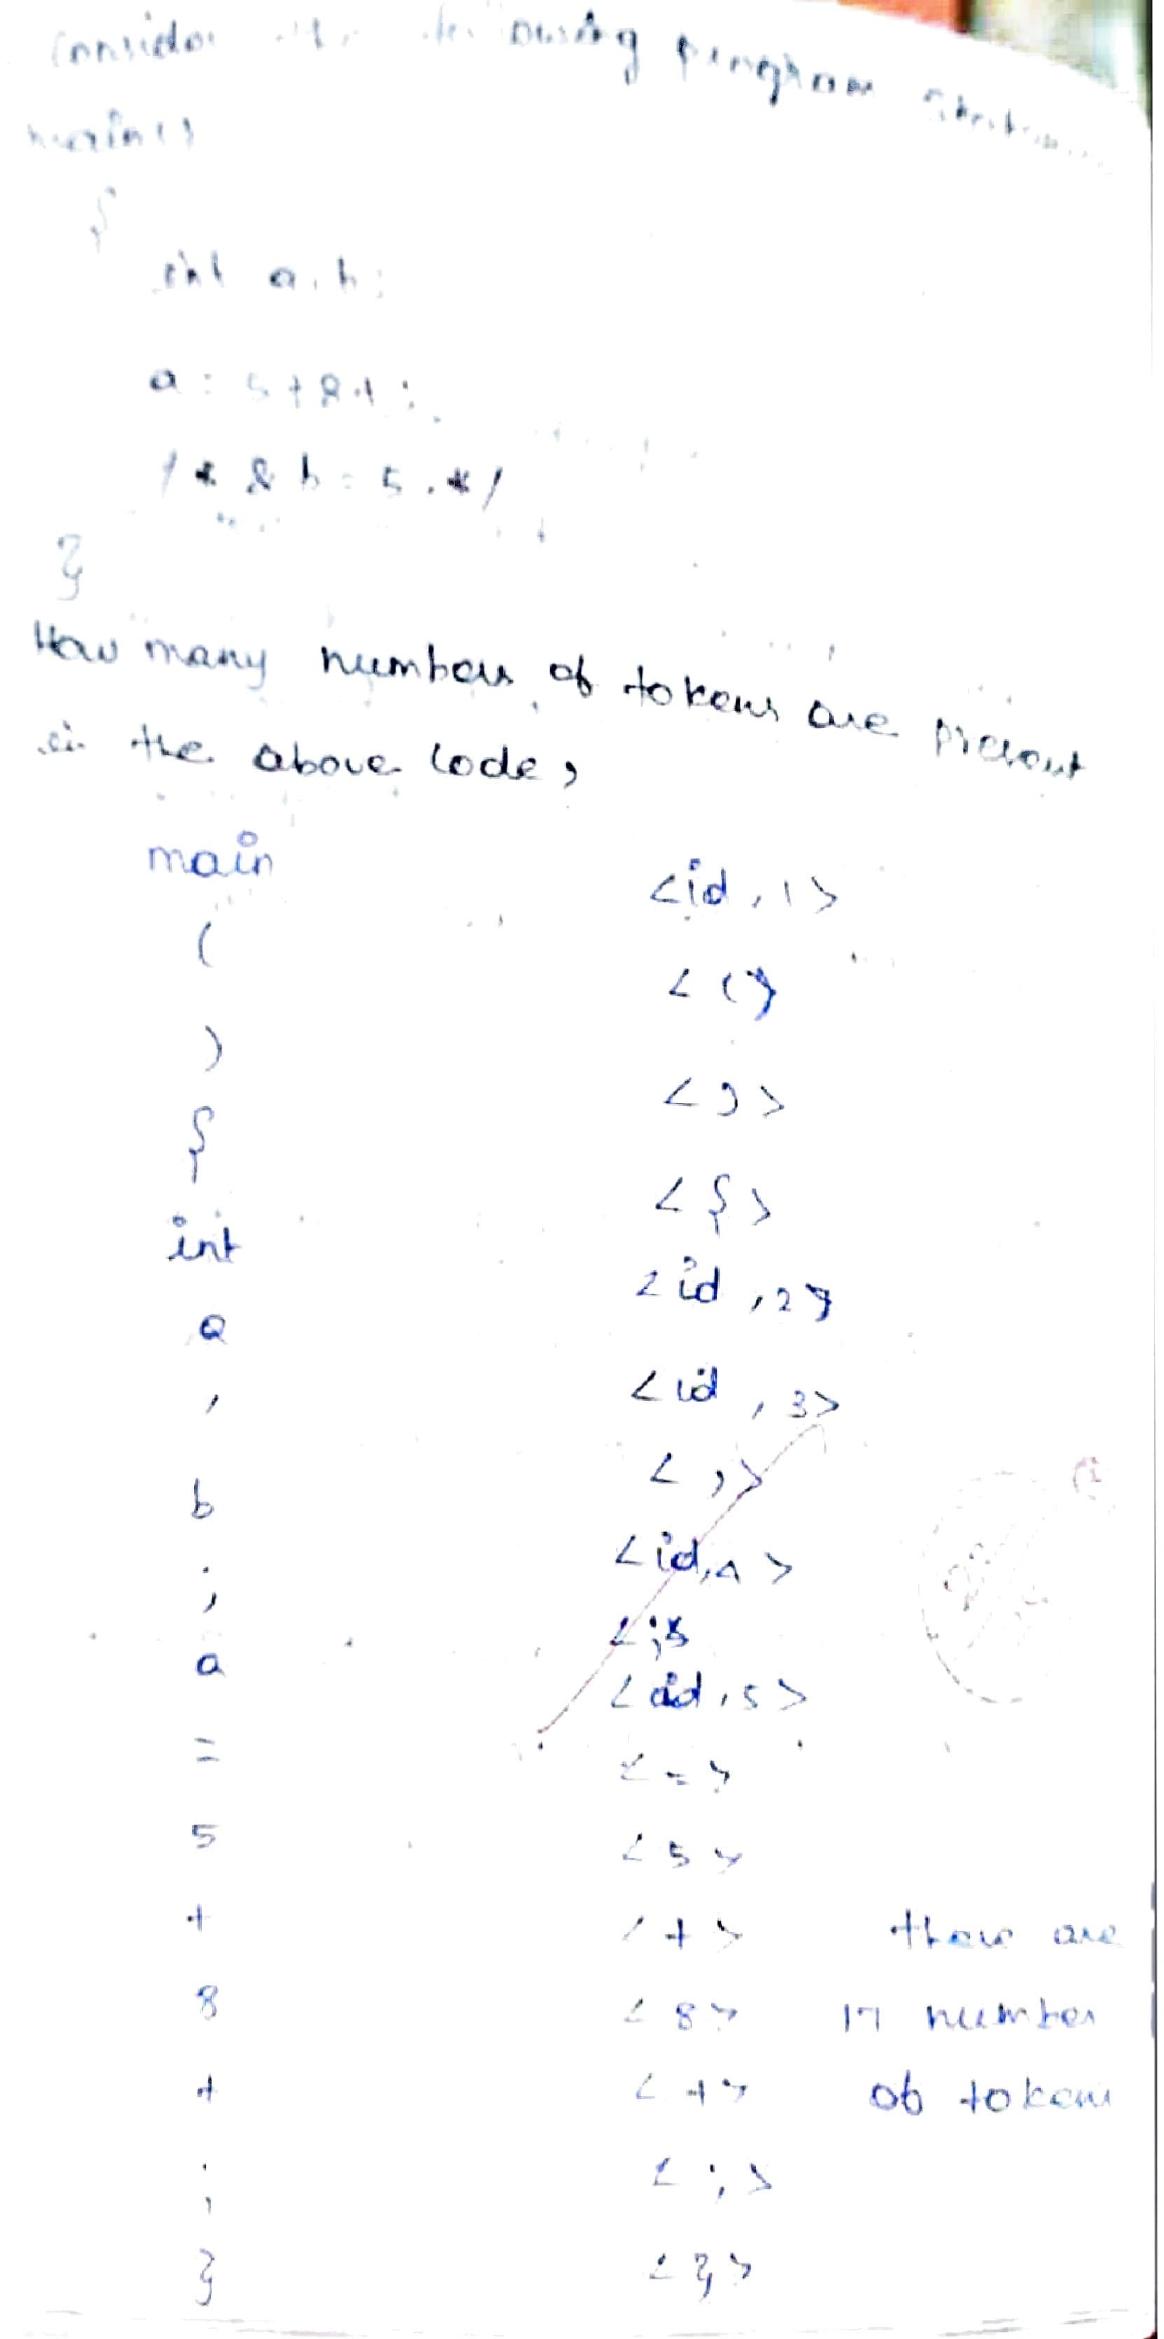 Consider
program
main()
{
int a, b;
a = 5+8+;
/* & b = 5. */
}
How many numbers of tokens are present
in the above code,
main <id, 1>
( <(>
) <)>
{ <{>
int <id, 2>
a <id, 3>
, <,>
b <id, 4>
; <;>
a <id, 5>
= <=>
5 <5>
+ <+> there are
8 <8> 17 number
+ <+> of tokens
; <;>
} <}>